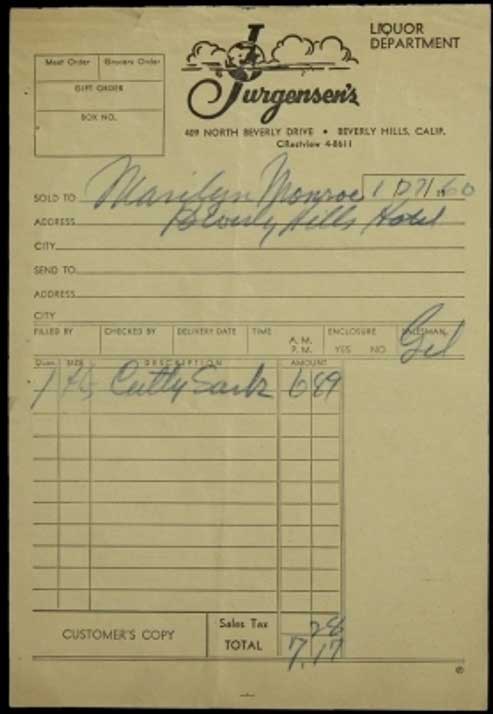 LIQUOR
DEPARTMENT
Meat Order Grocery Order
GIFT ORDER
BOX NO.
Jurgensen's
409 NORTH BEVERLY DRIVE • BEVERLY HILLS, CALIF.
CRestview 4-8611
SOLD TO Marilyn Monroe 19 60
ADDRESS Beverly Hills Hotel
CITY
SEND TO
ADDRESS
CITY
FILLED BY CHECKED BY DELIVERY DATE TIME A. M. P. M. ENCLOSURE YES NO SALESMAN Gil
Quan. SIZE DESCRIPTION AMOUNT
1 Cutty Sark 6 89
CUSTOMER'S COPY
Sales Tax 28
TOTAL 7.17